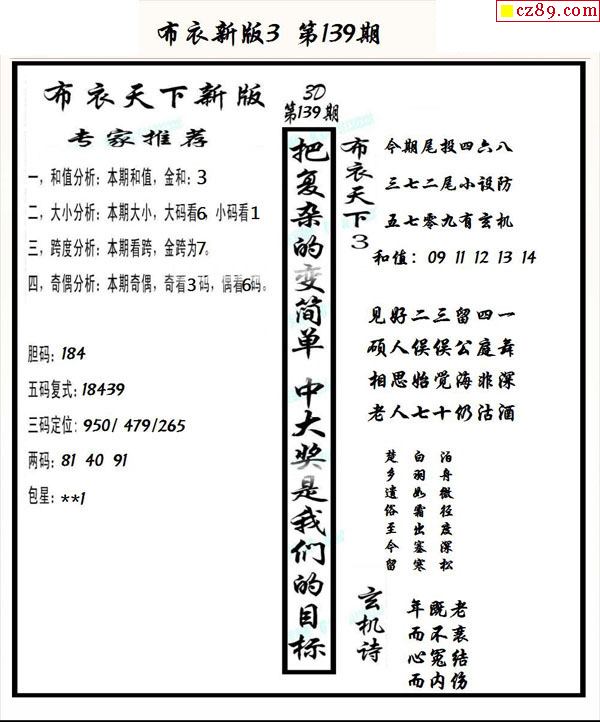 cz89.com
布衣新版3 第139期
布衣天下新版
专家推荐
一，和值分析：本期和值，金和：3
二，大小分析：本期大小，大码看6，小码看1
三，跨度分析：本期看跨，金跨为7。
四，奇偶分析：本期奇偶，奇看3码，偶看6码。
胆码：184
五码复式：18439
三码定位：950/ 479/265
两码：81 40 91
包星：**1
3D
第139期
把复杂的变简单 中大奖是我们的目标
布衣天下3
今期尾投四六八
三七二尾小设防
五七零九有玄机
和值：09 11 12 13 14
见好二三留四一
硕人俣俣公庭舞
相思始觉海非深
老人七十仍沽酒
泊舟微径度深松
白羽如霜出塞寒
楚乡遗俗至今留
玄机诗
年既老
而不衰
心冤结
而内伤